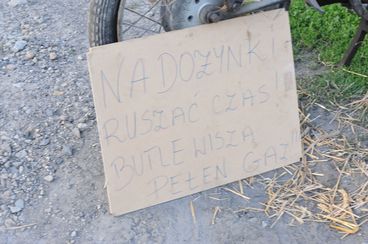 NA DOŻYNKI
RUSZAĆ CZAS!
BUTLE WISZĄ
PEŁEN GAZ!!